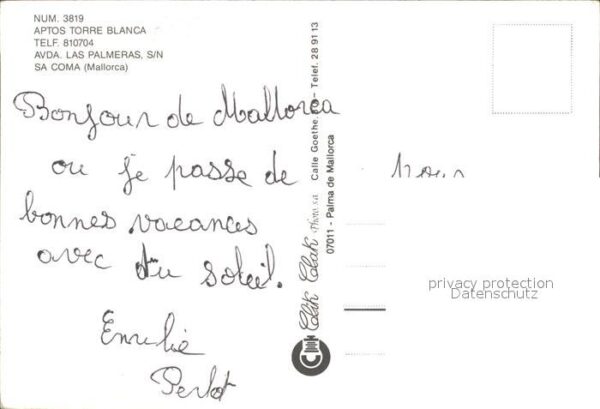 NUM. 3819
APTOS TORRE BLANCA
TELF. 810704
AVDA. LAS PALMERAS, S/N
SA COMA (Mallorca)
Bonjour de Mallorca
ou je passe de
bonnes vacances
avec du soleil.
Emilie
Perlot
Clik Clak Photo, s.a. Calle Goethe, - Telef. 28 91 13
07011 - Palma de Mallorca
privacy protection
Datenschutz